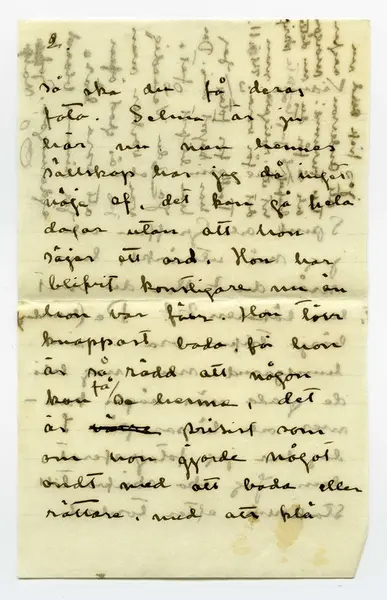 2.
så ska du få deras
foto. Selma är ju
här nu, men hennes
sällskap har jag då inget
nöje af, det kan gå hela
dagar utan att hon
säger ett ord. Hon har
blifvit konstigare nu än
hon var förr. Hon törs
knappast bada, för hon
är så rädd att någon
kan få se henne, det
är precist som
om hon gjorde något
ondt med att bada eller
rättare, med att klä